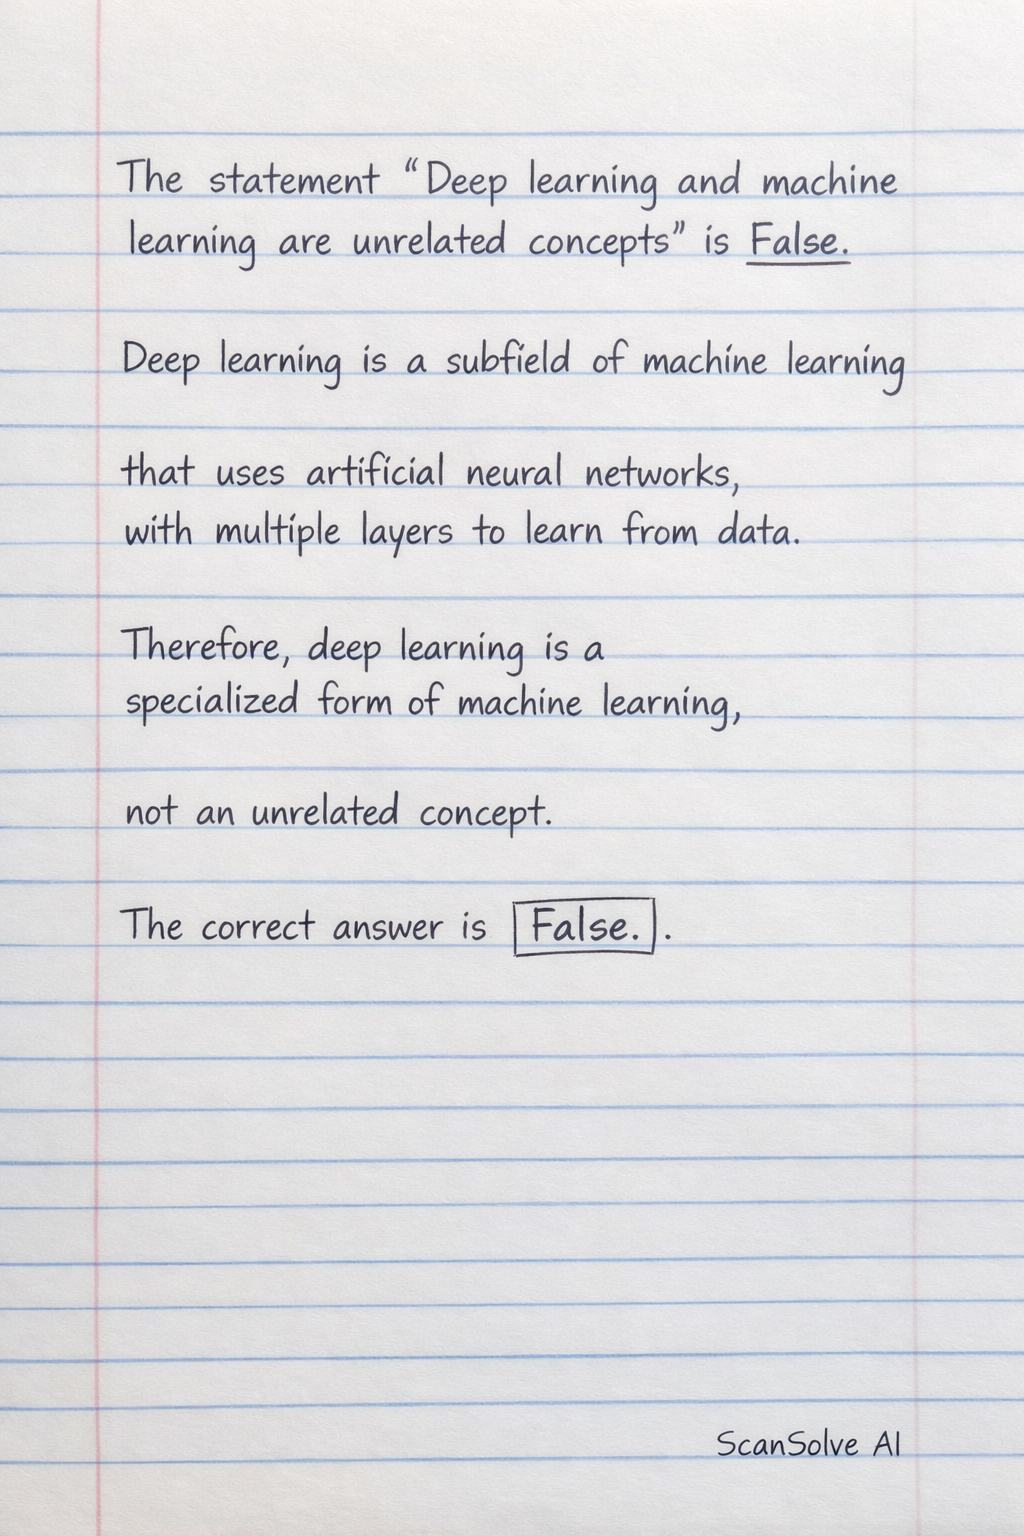 The statement “Deep learning and machine
learning are unrelated concepts” is False.
Deep learning is a subfield of machine learning
that uses artificial neural networks,
with multiple layers to learn from data.
Therefore, deep learning is a
specialized form of machine learning,
not an unrelated concept.
The correct answer is False. .
ScanSolve AI